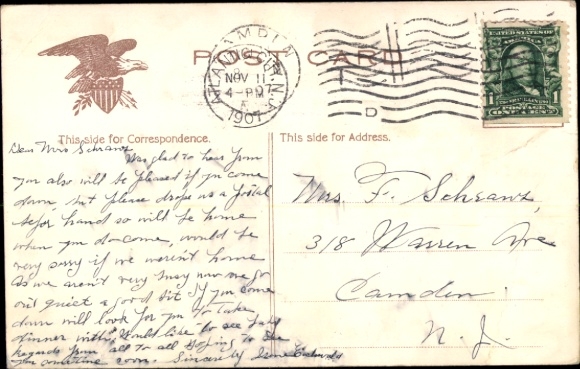 POST CARD
CAMDEN
NOV 11
4-PM
1907
D
UNITED STATES OF AMERICA
POSTAGE
1
This side for Correspondence.
This side for Address.
Dear Mrs Schranz
Was glad to hear from
you also will be pleased if you come
down but please drop us a postal
befor hand so will be home
when you do come, would be
very sorry if we weren't home
As we aren't very busy now we go
out quiet a good bit If you come
down will look for you to take
dinner with. Would like to see
Regards from all to all Hoping to see
you sometime soon. Sincerely
Mrs. F. Schranz,
318 Warren Ave
Camden
N. J.